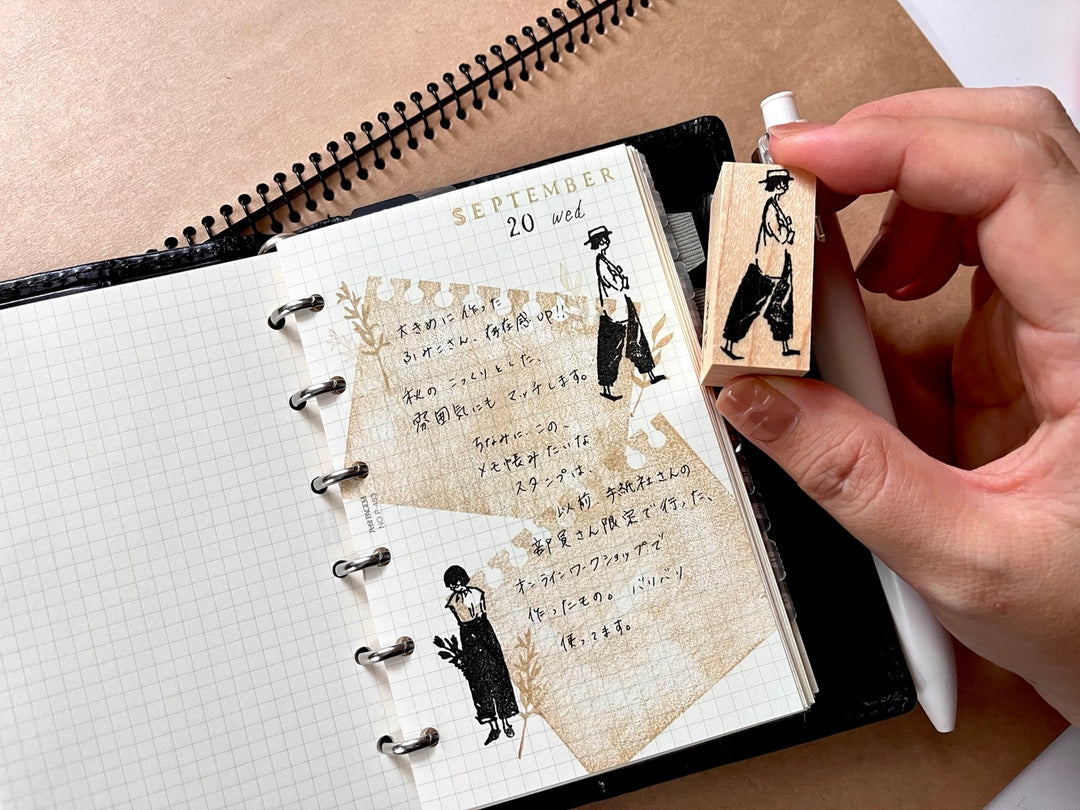 SEPTEMBER
20 wed
大きめに作った
ふみこさん、存在感UP!!
秋の こっくりとした、
雰囲気にも マッチします。
ちなみに、この、
メモ帳みたいな
スタンプは、
以前 手紙社さんの
部員さん限定で行った、
オンラインワークショップで
作ったもの。バリバリ
使ってます。